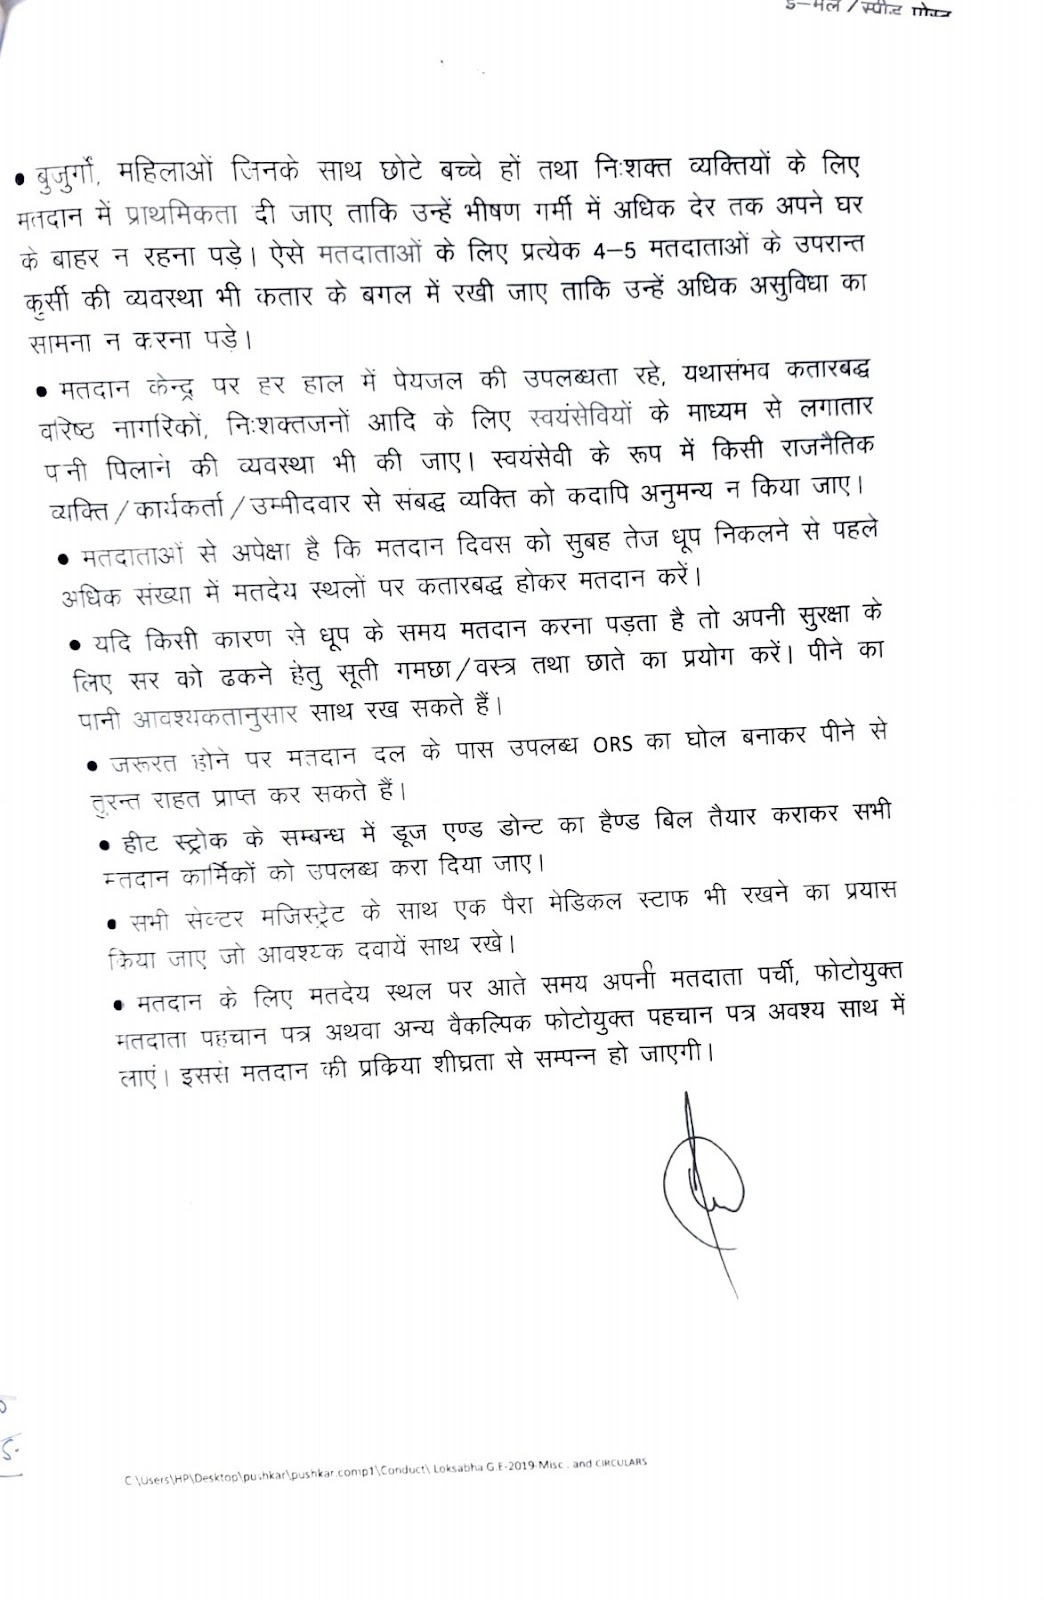 ई-मेल/स्पीड पोस्ट
• बुजुर्गों, महिलाओं जिनके साथ छोटे बच्चे हों तथा निःशक्त व्यक्तियों के लिए
मतदान में प्राथमिकता दी जाए ताकि उन्हें भीषण गर्मी में अधिक देर तक अपने घर
के बाहर न रहना पड़े। ऐसे मतदाताओं के लिए प्रत्येक 4–5 मतदाताओं के उपरान्त
कुर्सी की व्यवस्था भी कतार के बगल में रखी जाए ताकि उन्हें अधिक असुविधा का
सामना न करना पड़े।
• मतदान केन्द्र पर हर हाल में पेयजल की उपलब्धता रहे, यथासंभव कतारबद्ध
वरिष्ठ नागरिकों, निःशक्तजनों आदि के लिए स्वयंसेवियों के माध्यम से लगातार
पानी पिलाने की व्यवस्था भी की जाए। स्वयंसेवी के रूप में किसी राजनैतिक
व्यक्ति/कार्यकर्ता/उम्मीदवार से संबद्ध व्यक्ति को कदापि अनुमन्य न किया जाए।
• मतदाताओं से अपेक्षा है कि मतदान दिवस को सुबह तेज धूप निकलने से पहले
अधिक संख्या में मतदेय स्थलों पर कतारबद्ध होकर मतदान करें।
• यदि किसी कारण से धूप के समय मतदान करना पड़ता है तो अपनी सुरक्षा के
लिए सर को ढकने हेतु सूती गमछा/वस्त्र तथा छाते का प्रयोग करें। पीने का
पानी आवश्यकतानुसार साथ रख सकते हैं।
• जरूरत होने पर मतदान दल के पास उपलब्ध ORS का घोल बनाकर पीने से
तुरन्त राहत प्राप्त कर सकते हैं।
• हीट स्ट्रोक के सम्बन्ध में डूज एण्ड डोन्ट का हैण्ड बिल तैयार कराकर सभी
मतदान कार्मिकों को उपलब्ध करा दिया जाए।
• सभी सेक्टर मजिस्ट्रेट के साथ एक पैरा मेडिकल स्टाफ भी रखने का प्रयास
किया जाए जो आवश्यक दवायें साथ रखे।
• मतदान के लिए मतदेय स्थल पर आते समय अपनी मतदाता पर्ची, फोटोयुक्त
मतदाता पहचान पत्र अथवा अन्य वैकल्पिक फोटोयुक्त पहचान पत्र अवश्य साथ में
लाएं। इससे मतदान की प्रक्रिया शीघ्रता से सम्पन्न हो जाएगी।
C:\Users\HP\Desktop\pushkar\pushkar.comp1\Conduct\ Loksabha G.E-2019-Misc . and CIRCULARS